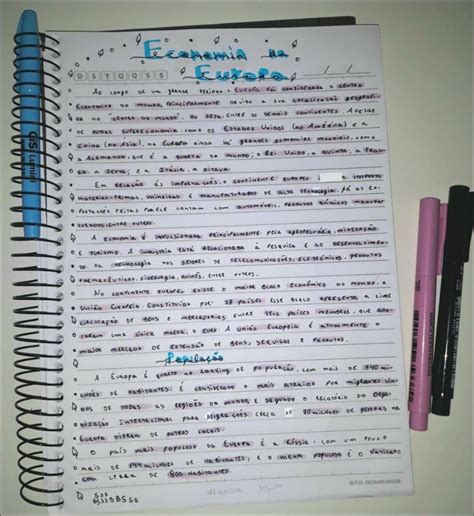 Economia da
Europa
D S T Q Q S S
Ao longo de um grande período, a Europa foi considerada o centro
econômico do mundo, principalmente devido a sua localização geográfi-
ca no "centro do mundo", ou seja, entre os demais continentes. Apesar
de outras supereconomias, como os Estados Unidos (na América) e a
China (na Ásia), na Europa ainda há grandes economias mundiais, como
a Alemanha, que é a quarta do mundo; o Reino Unido, a quinta; a Fran-
ça a sexta; e a Itália, a oitava.
Em relação às importações, o continente europeu importa
matérias-primas, minerais e manufaturados de alta tecnologia. Já as ex-
portações feitas por ele contam com automóveis, produtos químicos manufa-
turados, entre outros.
A economia é impulsionada principalmente pela agropecuária, mineração
e turismo. A indústria está relacionada à pesquisa e ao desenvolvimen-
to da tecnologia nos setores de telecomunicações, eletrônicos, produtos
farmacêuticos, siderurgia, aviões, entre outros.
No continente europeu existe o maior bloco econômico do mundo, a
União Europeia. Constituída por 28 países esse bloco apresenta a livre
circulação de bens e mercadorias entre seus países membros, que ado-
taram uma única moeda, o euro. A União Europeia é atualmente o
maior mercado de extensão de bens, serviços e produtos.
População
A Europa é quarto no ranking de população, com mais de 740 mi-
lhões de habitantes. É considerado o mais atraído por migrantes vin-
dos de todas as regiões do mundo e segundo o relatório da Or-
ganização Internacional para Migrações cerca de 70 milhões de pessoas na
Europa vieram de outros locais.
O país mais populoso da Europa é a Rússia, com um pouco
mais de 144 milhões de habitantes; e o menos populoso é o Vaticano
com cerca de 800 habitantes.
SÃO DOMINGOS
CIS Lumini